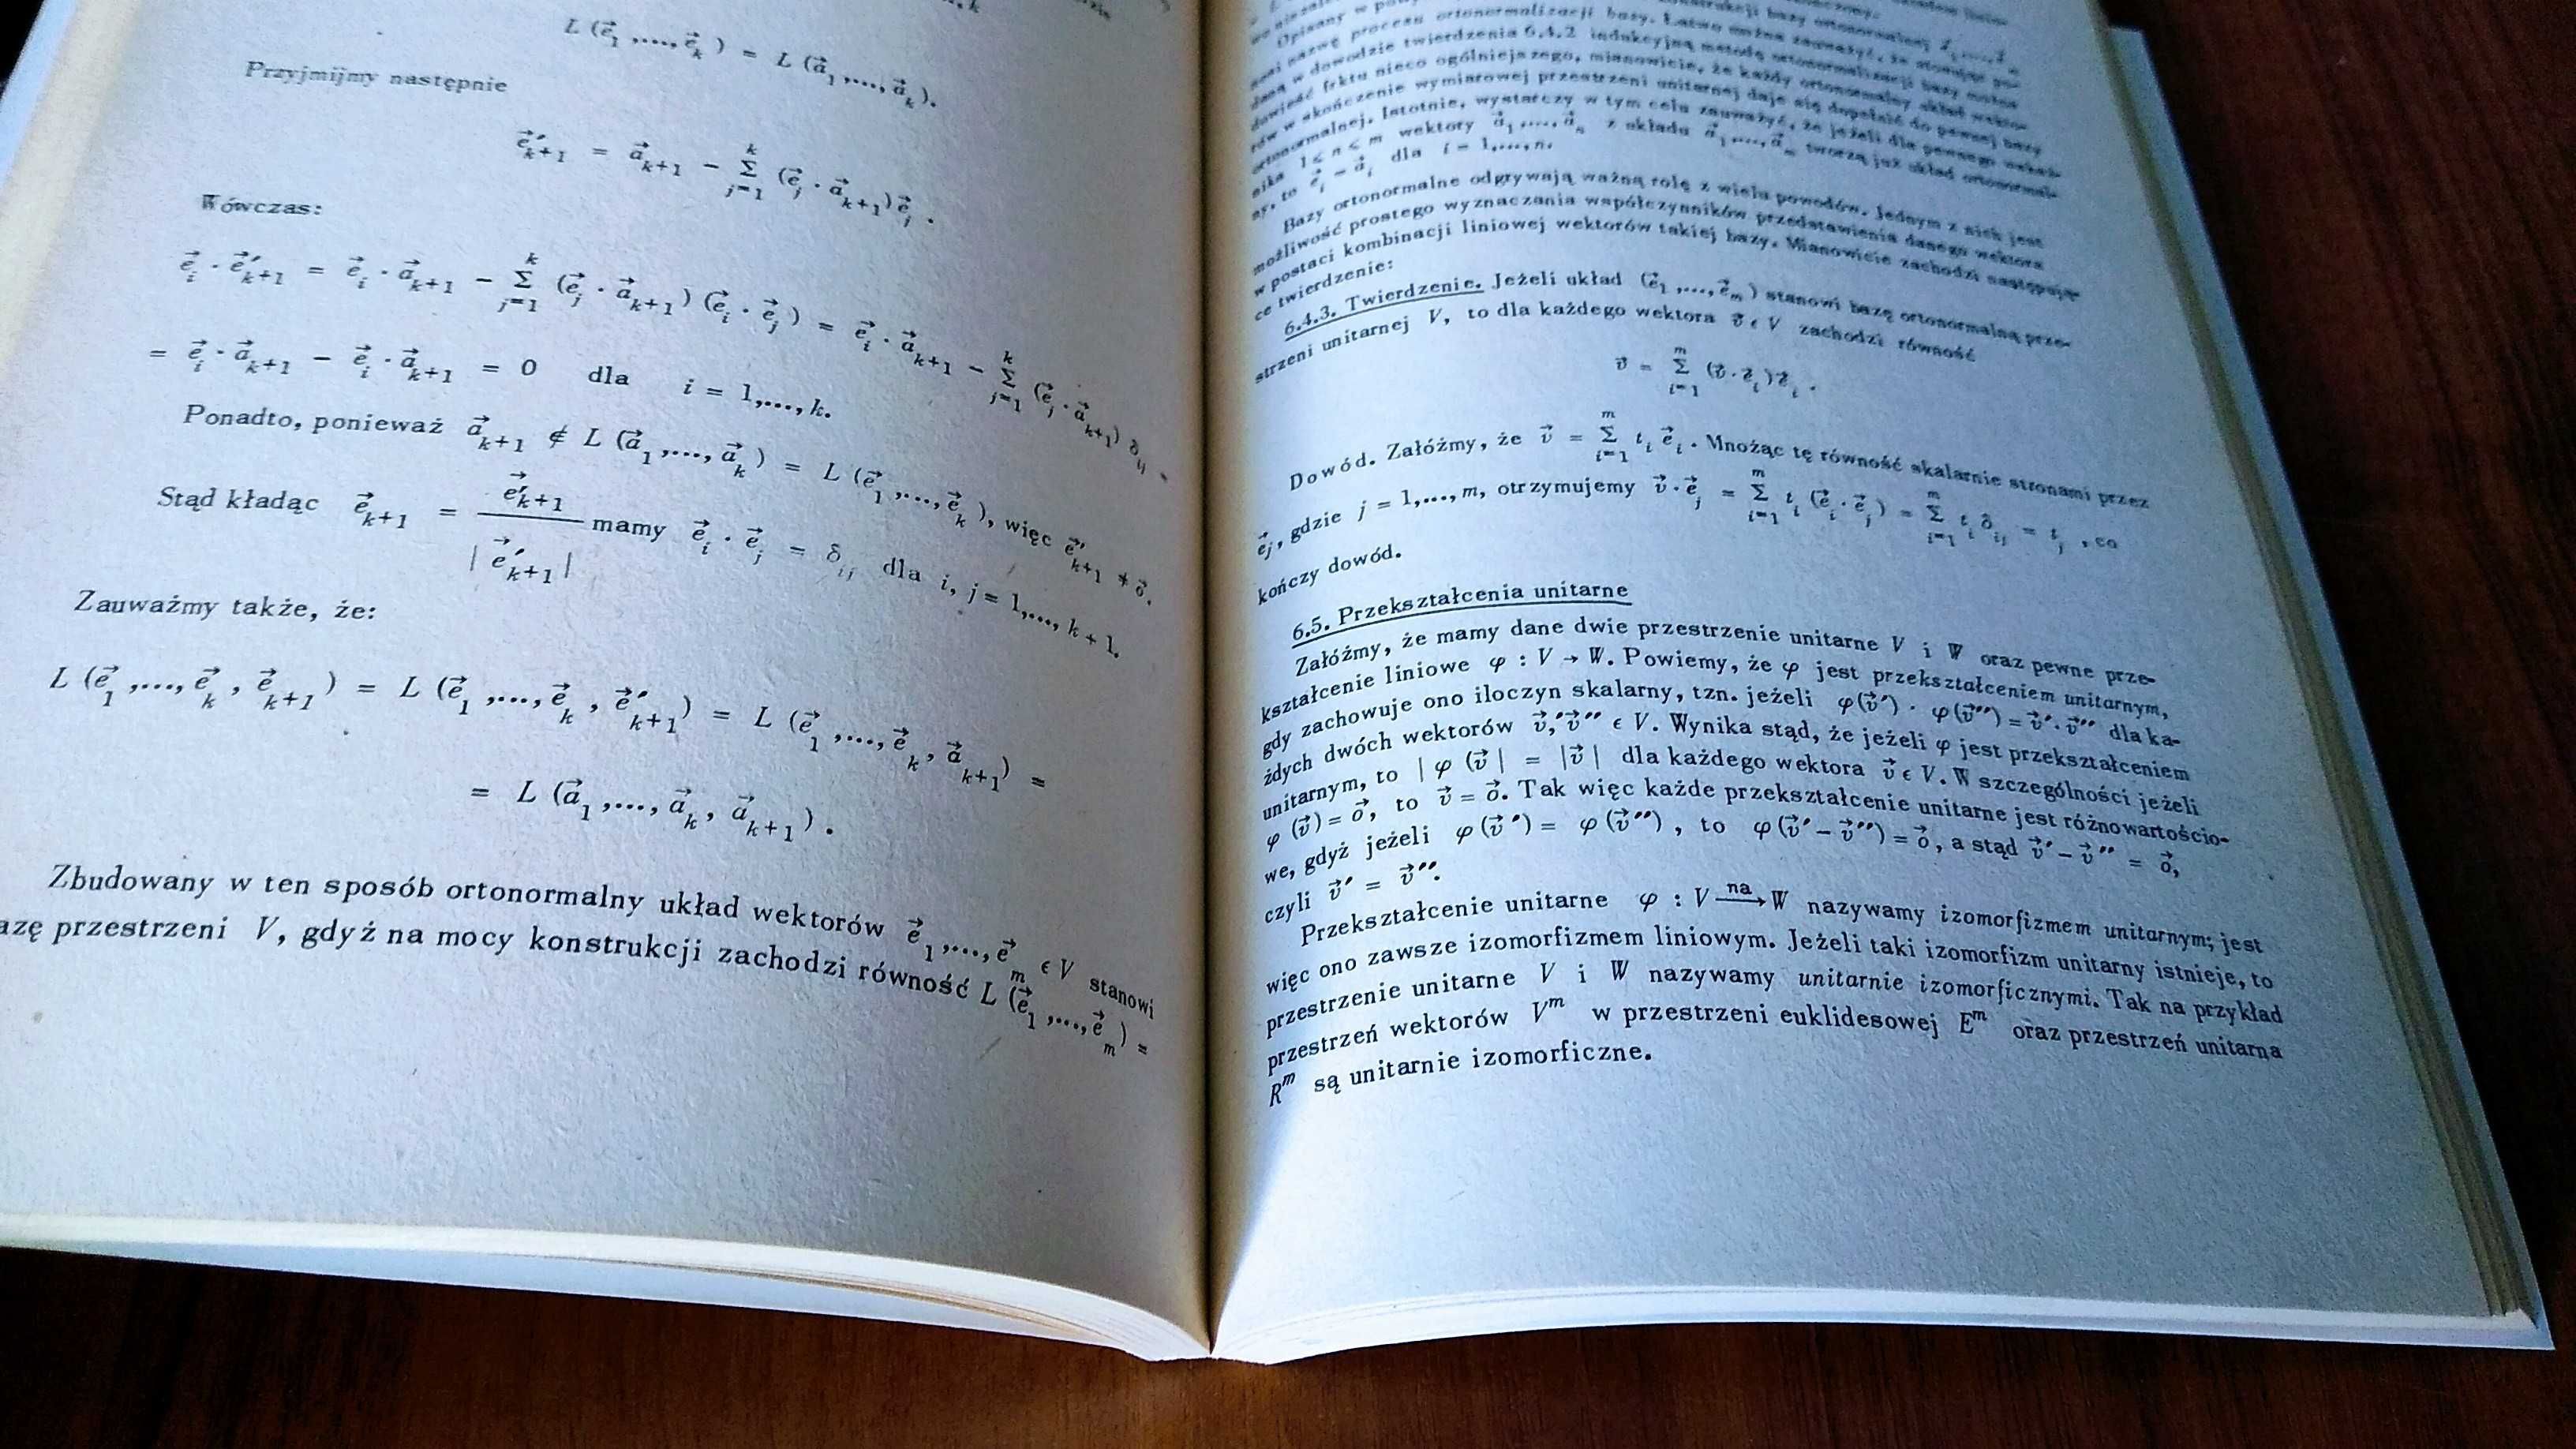 L (e⃗₁ ,..., e⃗ₖ ) = L (a⃗₁ ,..., a⃗ₖ ).
Przyjmijmy następnie
e⃗'ₖ₊₁ = a⃗ₖ₊₁ − Σⱼ₌₁ᵏ (e⃗ⱼ · a⃗ₖ₊₁) e⃗ⱼ .
Wówczas:
e⃗ᵢ · e⃗'ₖ₊₁ = e⃗ᵢ · a⃗ₖ₊₁ − Σⱼ₌₁ᵏ (e⃗ⱼ · a⃗ₖ₊₁) (e⃗ᵢ · e⃗ⱼ ) = e⃗ᵢ · a⃗ₖ₊₁ − Σⱼ₌₁ᵏ (e⃗ⱼ · a⃗ₖ₊₁) δᵢⱼ =
= e⃗ᵢ · a⃗ₖ₊₁ − e⃗ᵢ · a⃗ₖ₊₁ = 0 dla i = 1,..., k.
Ponadto, ponieważ a⃗ₖ₊₁ ∉ L (a⃗₁ ,..., a⃗ₖ ) = L (e⃗₁ ,..., e⃗ₖ ), więc e⃗'ₖ₊₁ ≠ o⃗.
Stąd kładąc e⃗ₖ₊₁ = e⃗'ₖ₊₁ / | e⃗'ₖ₊₁ | mamy e⃗ᵢ · e⃗ⱼ = δᵢⱼ dla i, j = 1,..., k + 1.
Zauważmy także, że:
L (e⃗₁ ,..., e⃗ₖ , e⃗ₖ₊₁ ) = L (e⃗₁ ,..., e⃗ₖ , e⃗'ₖ₊₁) = L (e⃗₁ ,..., e⃗ₖ , a⃗ₖ₊₁) =
= L (a⃗₁ ,..., a⃗ₖ , a⃗ₖ₊₁ ) .
Zbudowany w ten sposób ortonormalny układ wektorów e⃗₁ ,..., e⃗ₘ ϵ V stanowi
azę przestrzeni V, gdyż na mocy konstrukcji zachodzi równość L (e⃗₁ ,..., e⃗ₘ ) =
proces ortonormalizacji bazy. Łatwo można zauważyć, że stosując po-
w dowodzie twierdzenia 6.4.2 indukcyjną metodę ortonormalizacji bazy można
dowieść faktu nieco ogólniejszego, mianowicie, że każdy ortonormalny układ wekto-
rów w skończenie wymiarowej przestrzeni unitarnej daje się dopełnić do pewnej bazy
ortonormalnej. Istotnie, wystarczy w tym celu zauważyć, że jeżeli dla pewnego wskaź-
nika 1 ≤ n < m wektory a⃗₁ ,..., a⃗ₙ z układu a⃗₁ ,..., a⃗ₘ tworzą już układ ortonormal-
ny, to e⃗ᵢ = a⃗ᵢ dla i = 1,..., n.
Bazy ortonormalne odgrywają ważną rolę z wielu powodów. Jednym z nich jest
możliwość prostego wyznaczania współczynników przedstawienia danego wektora
w postaci kombinacji liniowej wektorów takiej bazy. Mianowicie zachodzi następują-
ce twierdzenie:
6.4.3. Twierdzenie. Jeżeli układ (e⃗₁ ,..., e⃗ₘ ) stanowi bazę ortonormalną prze-
strzeni unitarnej V, to dla każdego wektora v⃗ ϵ V zachodzi równość
v⃗ = Σᵢ₌₁ᵐ (v⃗ · e⃗ᵢ ) e⃗ᵢ .
Dowód. Załóżmy, że v⃗ = Σᵢ₌₁ᵐ tᵢ e⃗ᵢ . Mnożąc tę równość skalarnie stronami przez
e⃗ⱼ, gdzie j = 1,..., m, otrzymujemy v⃗ · e⃗ⱼ = Σᵢ₌₁ᵐ tᵢ (e⃗ᵢ · e⃗ⱼ ) = Σᵢ₌₁ᵐ tᵢ δᵢⱼ = tⱼ , co
kończy dowód.
6.5. Przekształcenia unitarne
Załóżmy, że mamy dane dwie przestrzenie unitarne V i W oraz pewne prze-
kształcenie liniowe φ : V → W. Powiemy, że φ jest przekształceniem unitarnym,
gdy zachowuje ono iloczyn skalarny, tzn. jeżeli φ(v⃗') · φ(v⃗'') = v⃗' · v⃗'' dla ka-
żdych dwóch wektorów v⃗,'v⃗'' ϵ V. Wynika stąd, że jeżeli φ jest przekształceniem
unitarnym, to | φ (v⃗ | = |v⃗ | dla każdego wektora v⃗ ϵ V. W szczególności jeżeli
φ (v⃗) = o⃗, to v⃗ = o⃗. Tak więc każde przekształcenie unitarne jest różnowartościo-
we, gdyż jeżeli φ (v⃗ ') = φ (v⃗'') , to φ (v⃗' − v⃗'') = o⃗ , a stąd v⃗' − v⃗'' = o⃗,
czyli v⃗' = v⃗''.
Przekształcenie unitarne φ : V —na→ W nazywamy izomorfizmem unitarnym; jest
więc ono zawsze izomorfizmem liniowym. Jeżeli taki izomorfizm unitarny istnieje, to
przestrzenie unitarne V i W nazywamy unitarnie izomorficznymi. Tak na przykład
przestrzeń wektorów Vᵐ w przestrzeni euklidesowej Eᵐ oraz przestrzeń unitarna
Rᵐ są unitarnie izomorficzne.